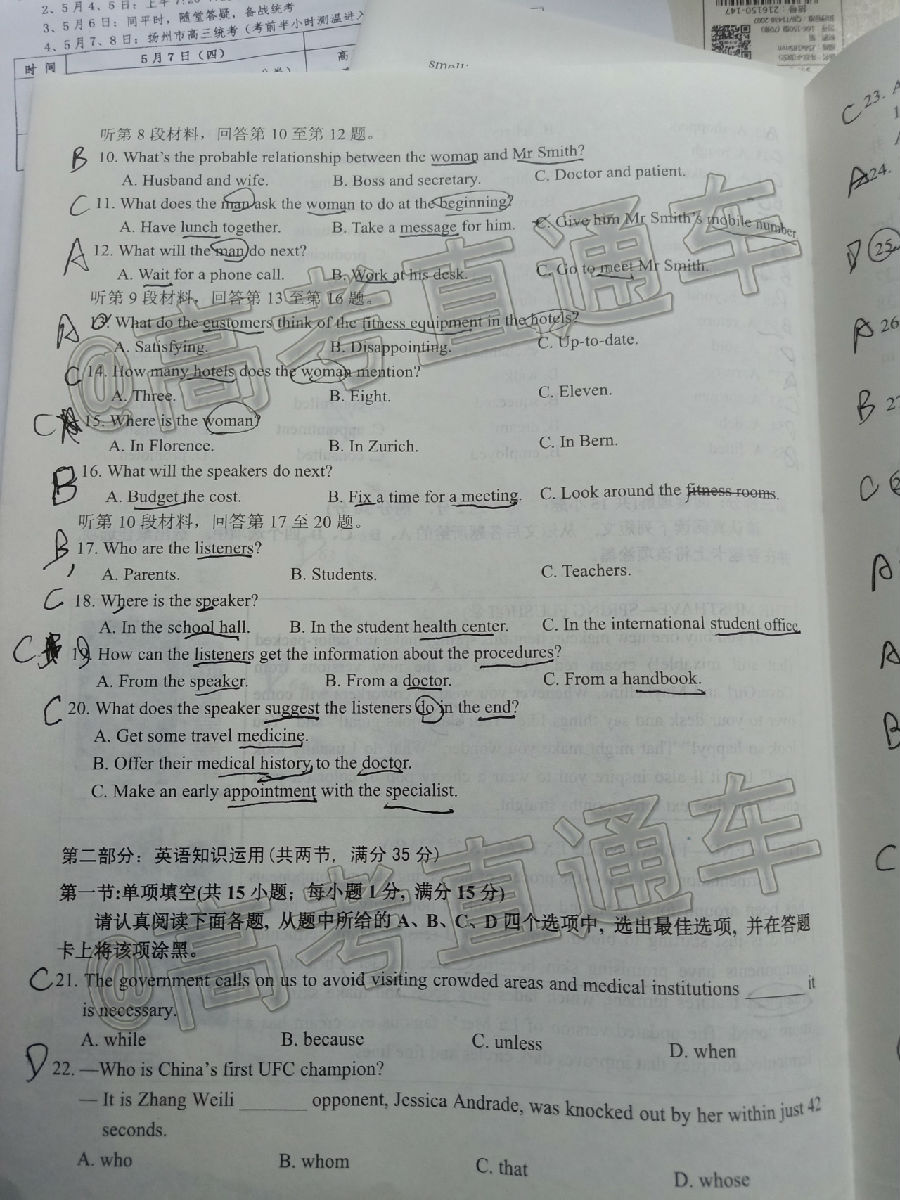 2、5月4、5日：上午
3、5月6日：同平时，随堂答疑，备战统考
4、5月7、8日：扬州市高三统考（考前半小时测温进入
时 间
5月7日（四）
听第8段材料，回答第10至第12题。
B 10. What's the probable relationship between the woman and Mr Smith?
A. Husband and wife. B. Boss and secretary. C. Doctor and patient.
C 11. What does the man ask the woman to do at the beginning?
A. Have lunch together. B. Take a message for him. C. Give him Mr Smith's mobile number
A 12. What will the man do next?
A. Wait for a phone call. B. Work at his desk. C. Go to meet Mr Smith.
听第9段材料，回答第13至第16题。
A 13. What do the customers think of the fitness equipment in the hotels?
A. Satisfying. B. Disappointing. C. Up-to-date.
C 14. How many hotels does the woman mention?
A. Three. B. Eight. C. Eleven.
C 15. Where is the woman?
A. In Florence. B. In Zurich. C. In Bern.
B 16. What will the speakers do next?
A. Budget the cost. B. Fix a time for a meeting. C. Look around the fitness rooms.
听第10段材料，回答第17至20题。
B 17. Who are the listeners?
A. Parents. B. Students. C. Teachers.
C 18. Where is the speaker?
A. In the school hall. B. In the student health center. C. In the international student office
C 19. How can the listeners get the information about the procedures?
A. From the speaker. B. From a doctor. C. From a handbook.
C 20. What does the speaker suggest the listeners do in the end?
A. Get some travel medicine.
B. Offer their medical history to the doctor.
C. Make an early appointment with the specialist.
第二部分：英语知识运用(共两节，满分35分)
第一节:单项填空(共15小题；每小题1分, 满分15分)
请认真阅读下面各题, 从题中所给的A、B、C、D四个选项中, 选出最佳选项, 并在答题
卡上将该项涂黑。
C 21. The government calls on us to avoid visiting crowded areas and medical institutions ______ it
is necessary.
A. while B. because C. unless D. when
D 22. —Who is China's first UFC champion?
— It is Zhang Weili ______ opponent, Jessica Andrade, was knocked out by her within just 42
seconds.
A. who B. whom C. that D. whose
C 23. A
A 24.
D 25
A 26
B 2
C
A
A
B
C
@高考直通车
@高考直通车